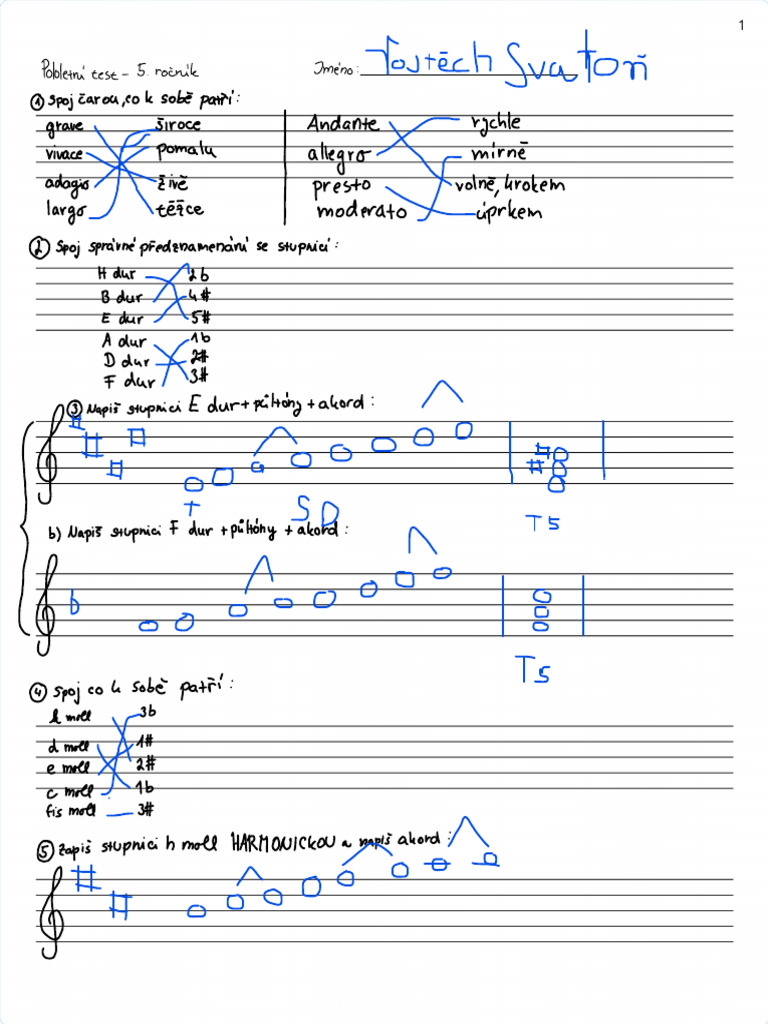 1
Pololetní test - 5. ročník Jméno: Vojtěch Svatoň
① Spoj čarou, co k sobě patří:
grave široce Andante rychle
vivace pomalu allegro mírně
adagio živě presto volně, krokem
largo těžce moderato úprkem
② Spoj správné předznamenání se stupnicí:
H dur 2b
B dur 4#
E dur 5#
A dur 1b
D dur 2#
F dur 3#
③ Napiš stupnici E dur + půltóny + akord:
T S D T5
b) Napiš stupnici F dur + půltóny + akord:
T5
④ Spoj co k sobě patří:
h moll 3b
d moll 1#
e moll 2#
c moll 1b
fis moll 3#
⑤ Zapiš stupnici h moll HARMONICKOU a napiš akord: